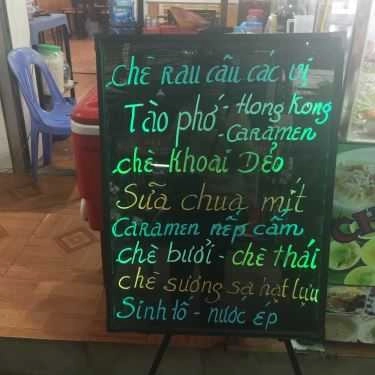 chè rau câu các vị
Tào phớ - Hong Kong
- Caramen
chè Khoai Dẻo
Sữa chua mít
Caramen nếp cẩm
chè bưởi - chè thái
chè sương sa hạt lựu
Sinh tố - nước ép